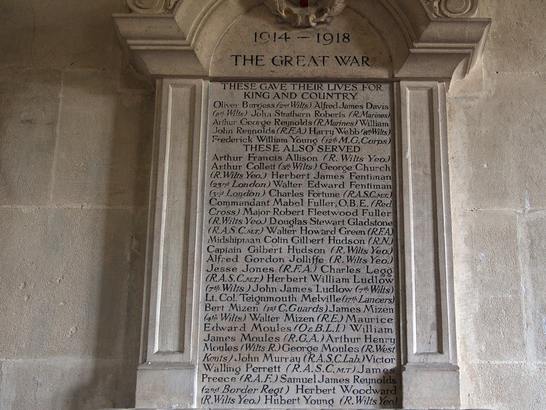 1914 – 1918
THE GREAT WAR
THESE GAVE THEIR LIVES FOR
KING AND COUNTRY.
Oliver Burgess (2nd Wilts) Alfred James Davis
John Strathern Roberts (R. Marines)
Arthur George Reynolds (R. Marines) William
John Reynolds (R.F.A.) Harry Webb
Frederick William Young (12th M.G. Corps)
THESE ALSO SERVED
Arthur Francis Allison (R. Wilts Yeo.)
Arthur Collett (5th Wilts) George Church
(R. Wilts Yeo.) Herbert James Fentiman
(23rd London) Walter Edward Fentiman
London) Charles Fortune (R.A.S.C. M.T.)
Commandant Mabel Fuller, O.B.E. (Red
Cross) Major Robert Fleetwood Fuller
(R. Wilts Yeo.) Douglas Stewart Gladstone
(R.A.S.C. M.T.) Walter Howard Green (R.F.A.)
Midshipman Colin Gilbert Hudson (R.N.)
Captain Gilbert Hudson (R. Wilts Yeo.)
Alfred Gordon Jolliffe (R. Wilts Yeo.)
Jesse Jones (R.F.A.) Charles Legg
(R.A.S.C. M.T.) Herbert William Ludlow
(7th Wilts) John James Ludlow (7th Wilts)
Lt. Col. Teignmouth Melville (17th Lancers)
Bert Mizen (1st C. Guards) James Mizen
(4th Wilts) Walter Mizen (R.E.) Maurice
Edward Moules (O. & B.L.I.) William
James Moules (R.G.A.) Arthur Henry
Moules (Wilts R.) George Moules (R. West
Kents) John Murray (R.A.S.C. Lab.) Victor
Walling Perrett (R.A.S.C. M.T.) James
Preece (R.A.F.) Samuel James Reynolds
(2nd Border Regt) Herbert Woodward
(R. Wilts Yeo.) Hubert Young (R. Wilts Yeo.)